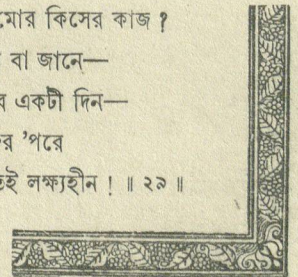 মোর কিসের কাজ ?
বা জানে—
একটী দিন—
'পরে
লক্ষ্যহীন ! ॥ ২৯ ॥